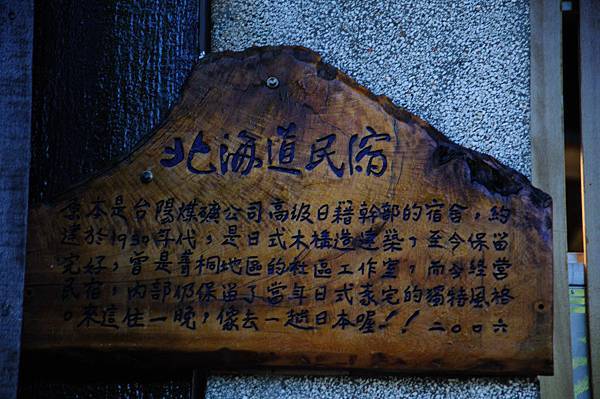 北海道民宿
原本是台陽煤礦公司高級日籍幹部的宿舍，約
建於1930年代，是日式木構造建築，至今保留
完好，曾是菁桐地區的社區工作室，而今經營
民宿，內部仍保留了當年日式家宅的獨特風格
。來這住一晚，像去一趟日本喔！！二００六